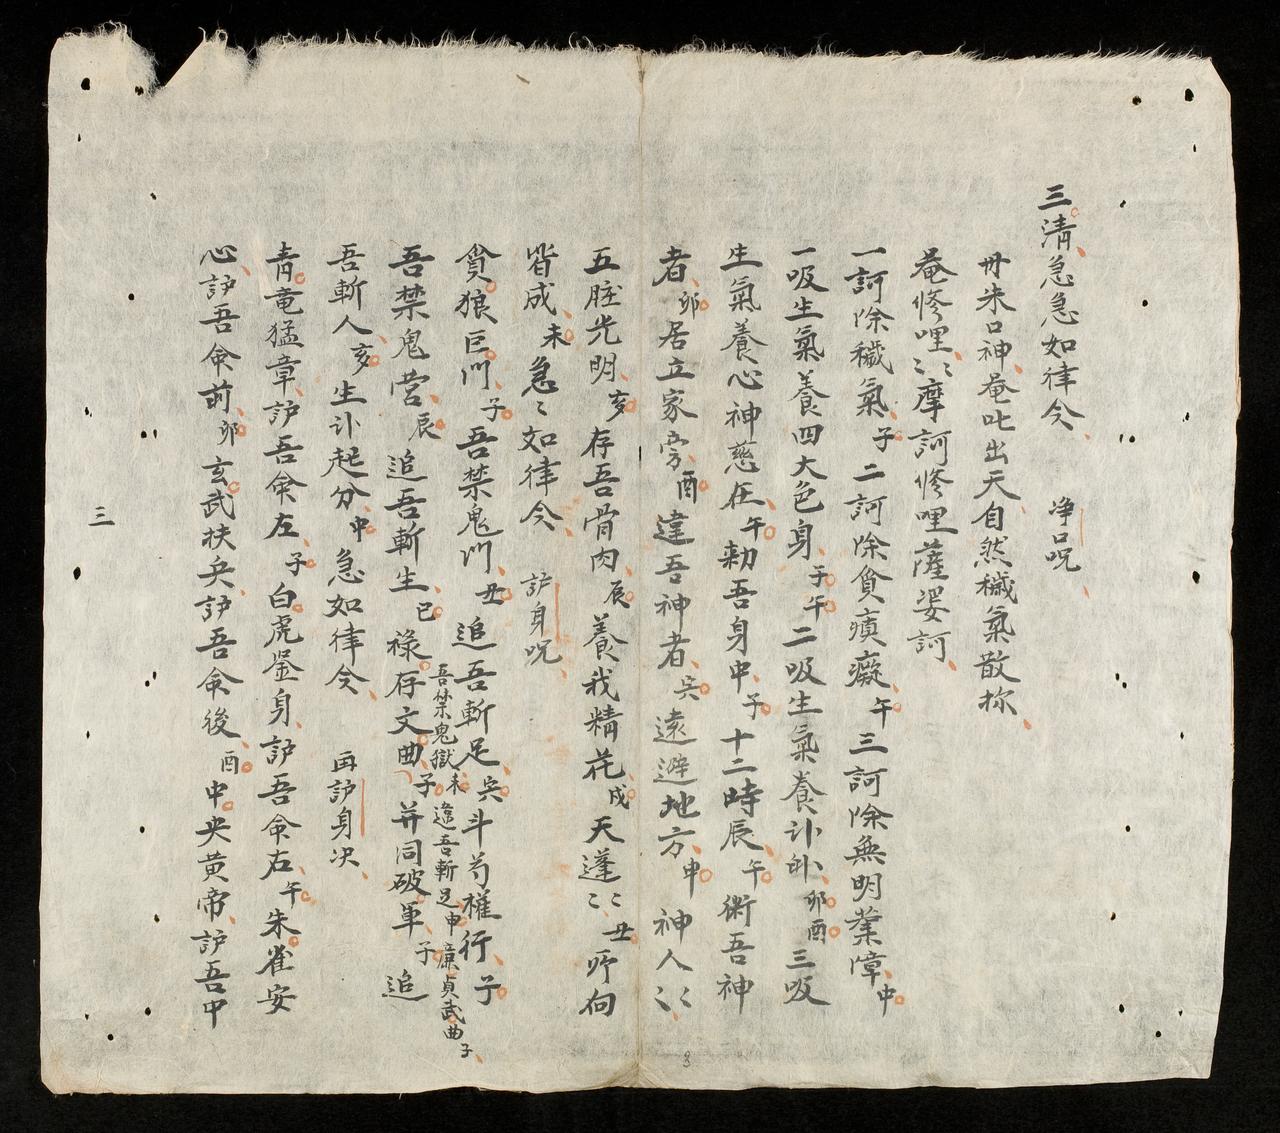 三清急急如律令　净口呪
丹朱口神菴叱出天自然穢氣散抐
菴修哩〻〻摩訶修哩薩婆訶
一訶除穢氣子二訶除貪瘨癡午三訶除無明業障中
一吸生氣養四大色身子午二吸生氣養卟卦卯酉三吸
生氣養心神慈在午勅吾身中子十二時辰午衛吾神
者卯居立家旁酉違吾神者吳遠避地方申神人〻〻
五脏光明亥存吾骨肉辰養我精花戌天蓬〻〻丑所向
皆成未急〻如律令　䕶身呪
貪狼巨門子吾禁鬼門丑追吾斬足吳斗芍權行子
吾禁鬼獄未違吾斬足申廉貞武曲子
吾禁鬼营辰追吾斬生巳祿存文曲子并同破軍子追
吾斬人亥生卟起分中急如律令　再护身决
青竜猛章护吾傘左子白虎鉴身护吾傘右午朱雀安
心护吾傘前卯玄武扶兵护吾傘後酉中央黄帝护吾中
三
3